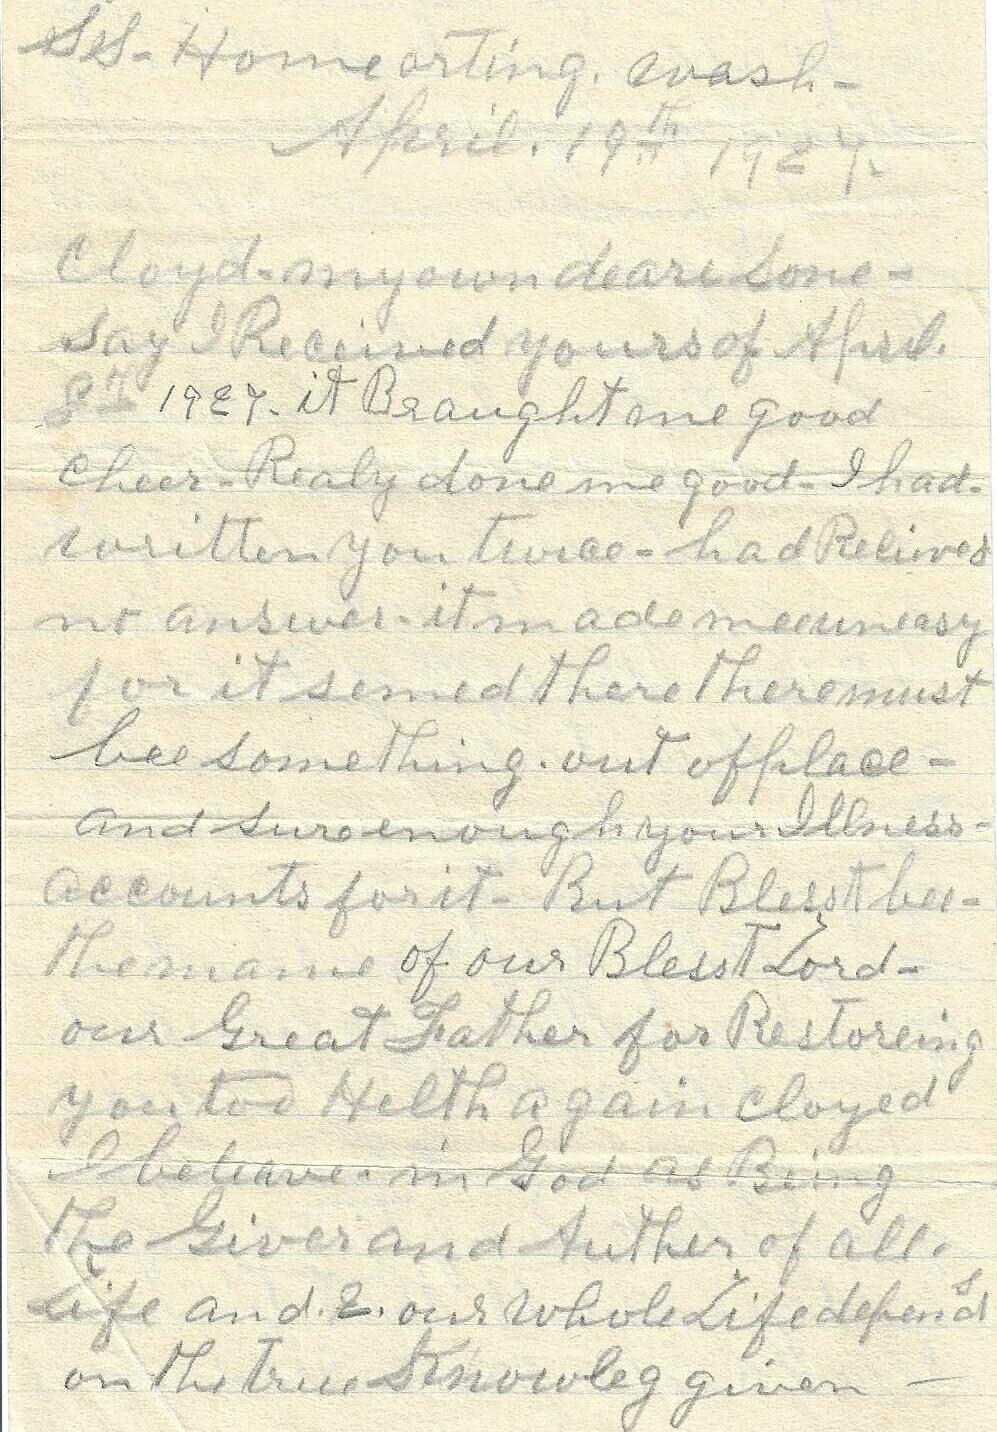 SS- Home orting. wash-
April. 19th 1927.
Cloyd- my own deare Sone-
Say I Received yours of April.
8th 1927. it Braught me good
cheer- Realy done me good- I had-
written you twice- had Recieved
no answer- it made mee uneasy
for it semed there there must
bee something. out of place-
and sure enough your Illness-
accounts for it- But Blesst bee-
the name of our Blesst Lord-
our Great Father for Restoreing
you too Helth again cloyed
I beleave. in God as Being
the Giver and Auther of all.
Life and. 2. our whole Life depends
on the true Knowleg given -